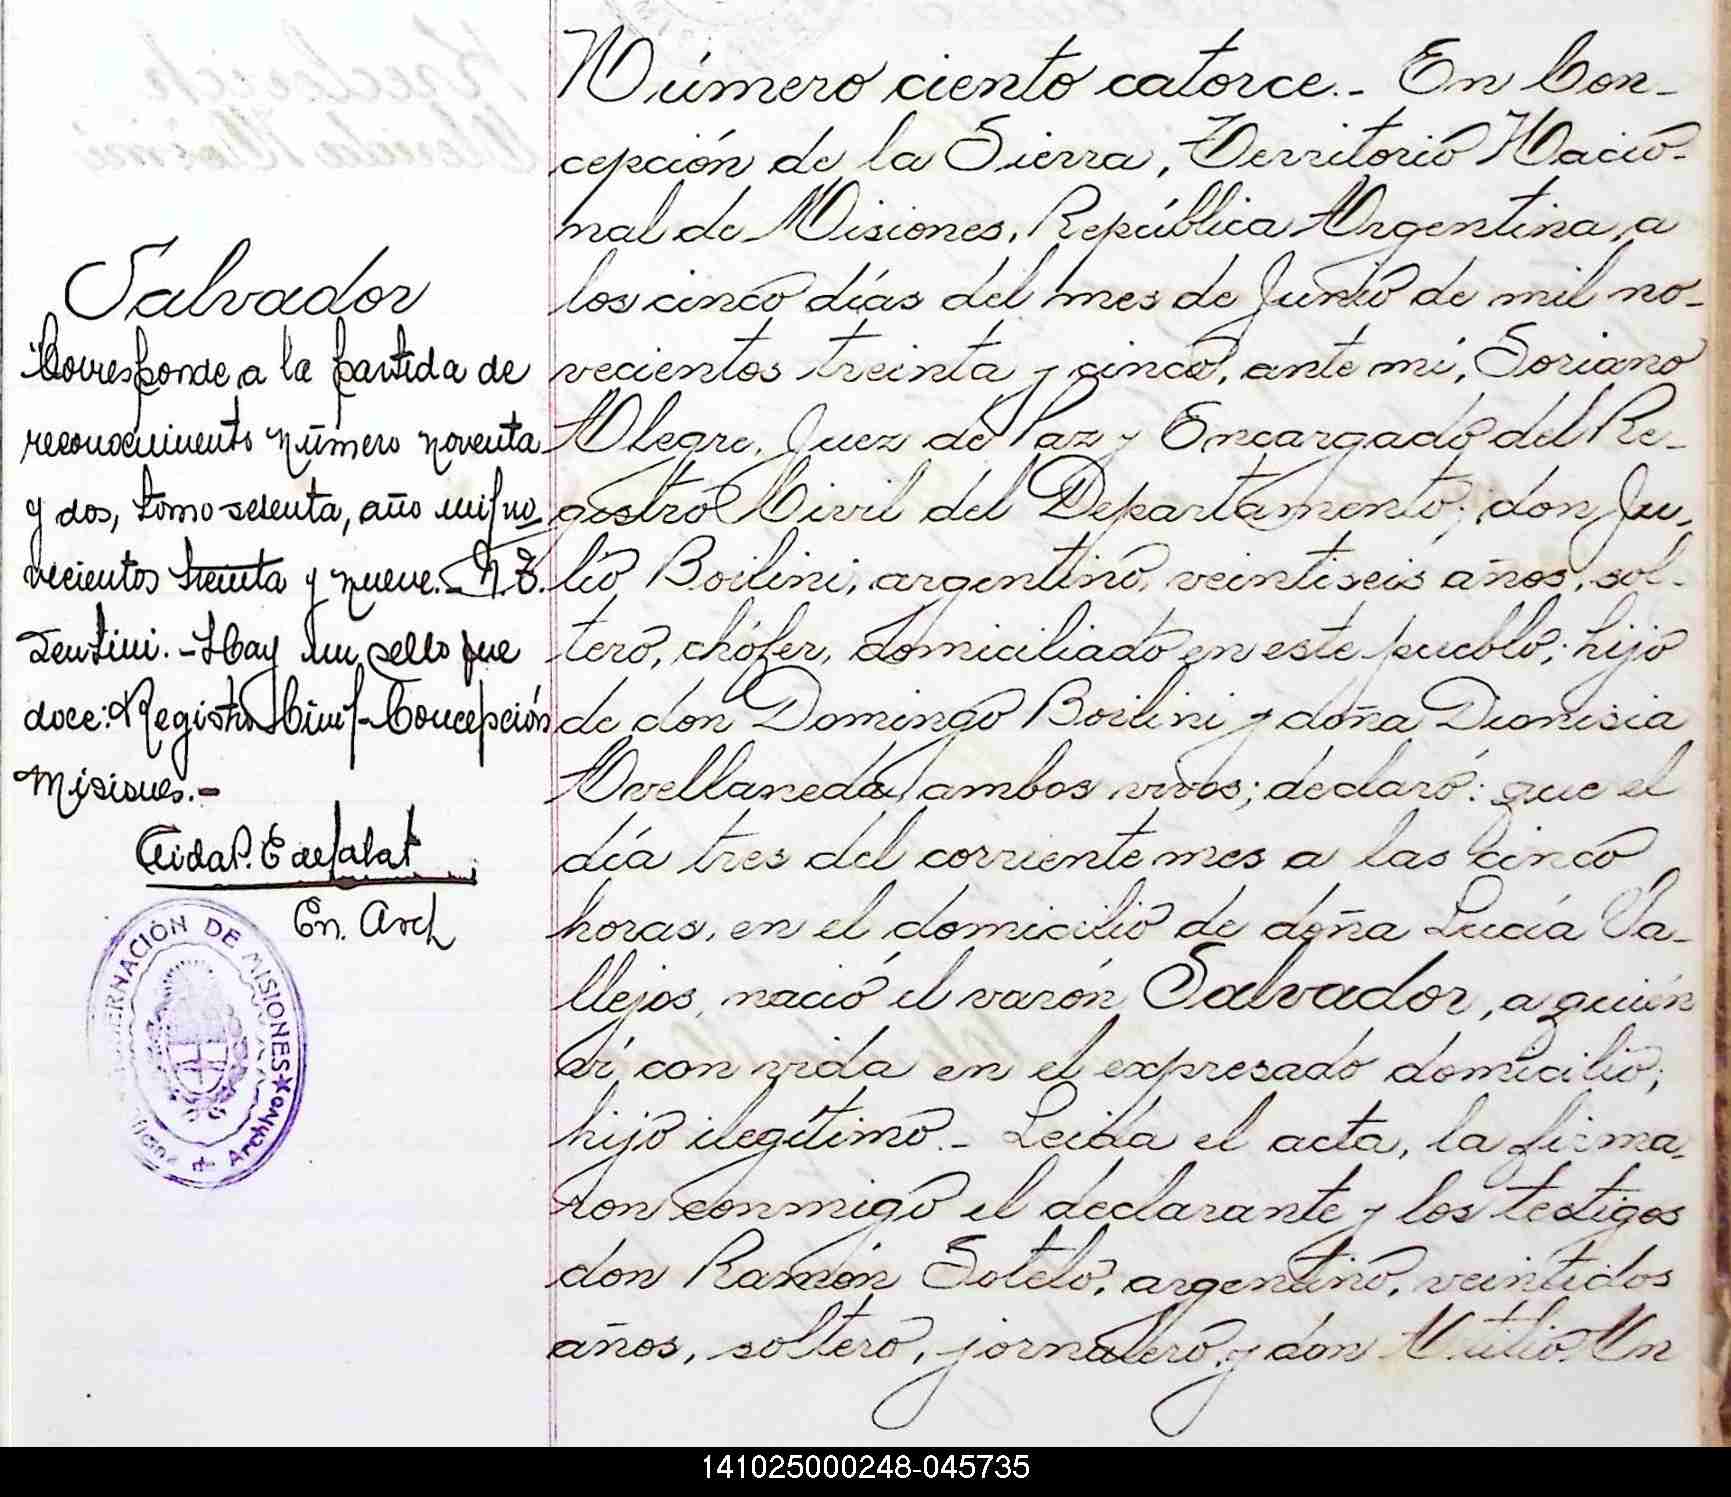 Salvador
"Corresponde a la partida de
reconocimiento número noventa
y dos, tomo sesenta, año mil no
vecientos treinta y nueve.-
Hay un sello que
dece: Registro Civil-Concepción
Misiones.-
En. Arch
GOBERNACIÓN DE MISIONES
de Archivo
Número ciento catorce.- En Con-
cepción de la Sierra, Territorio Nacio-
nal de Misiones, República Argentina, a
los cinco días del mes de Junio de mil no-
vecientos treinta y cinco, ante mi, Soriano
Alegre, Juez de Paz y Encargado del Re-
gistro Civil del Departamento; don Ju-
lio Boilini, argentino, veintiseis años, sol-
tero, chófer, domiciliado en este pueblo; hijo
de don Domingo Boilini y doña Dionisia
Avellaneda, ambos vivos; declaró: que el
día tres del corriente mes a las cinco
horas, en el domicilio de doña Lucía Va-
llejos, nació el varón Salvador, a quién
ví con vida en el expresado domicilio;
hijo ilegítimo.- Leida el acta, la firma-
ron conmigo el declarante y los testigos
don Ramón Sotelo, argentino, veintidos
años, soltero, jornalero, y don
141025000248-045735